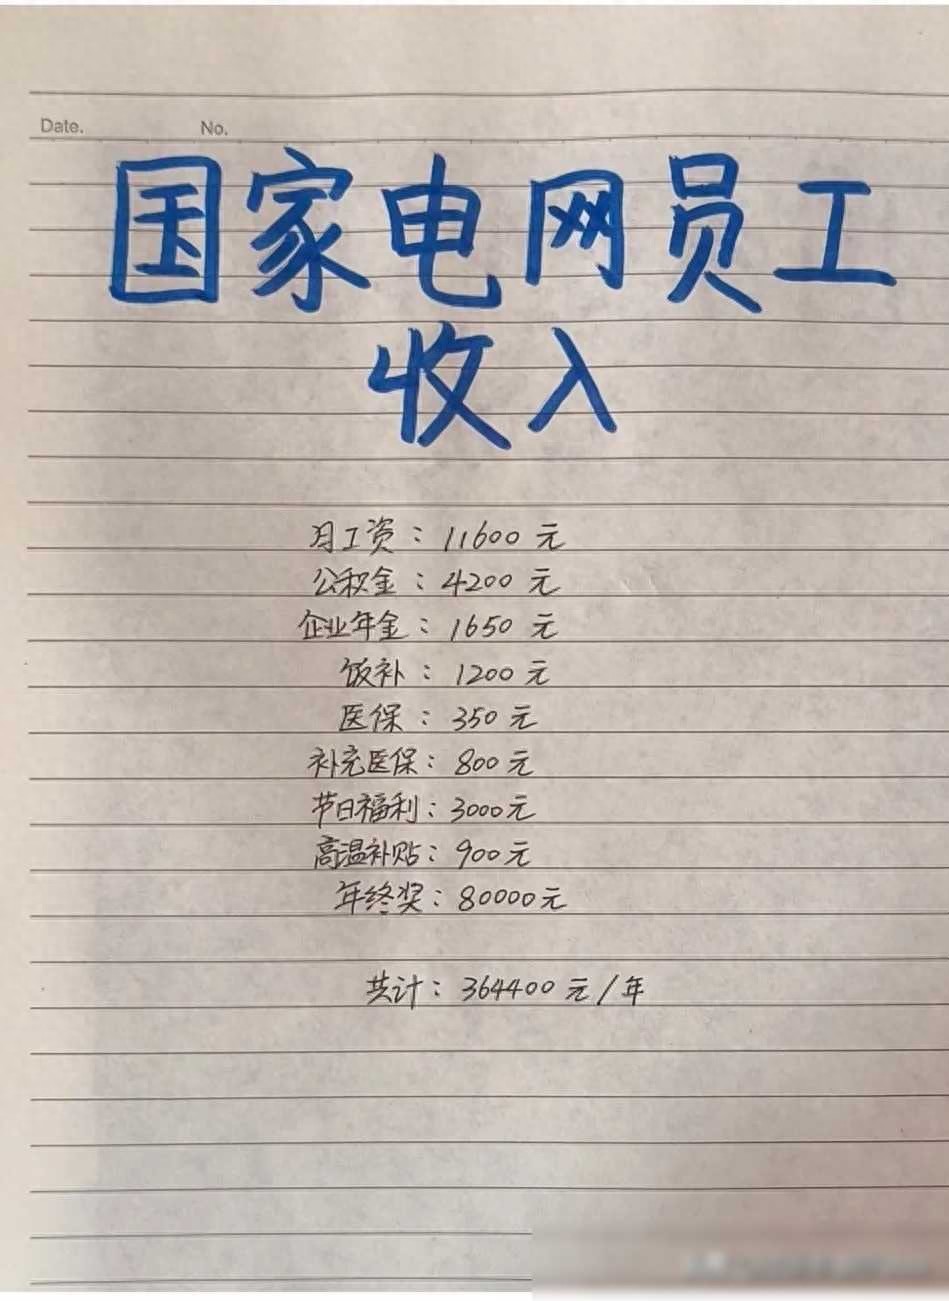 Date. No.
国家电网员工
收入
月工资：11600元
公积金：4200元
企业年金：1650元
饭补：1200元
医保：350元
补充医保：800元
节日福利：3000元
高温补贴：900元
年终奖：80000元
共计：364400元/年